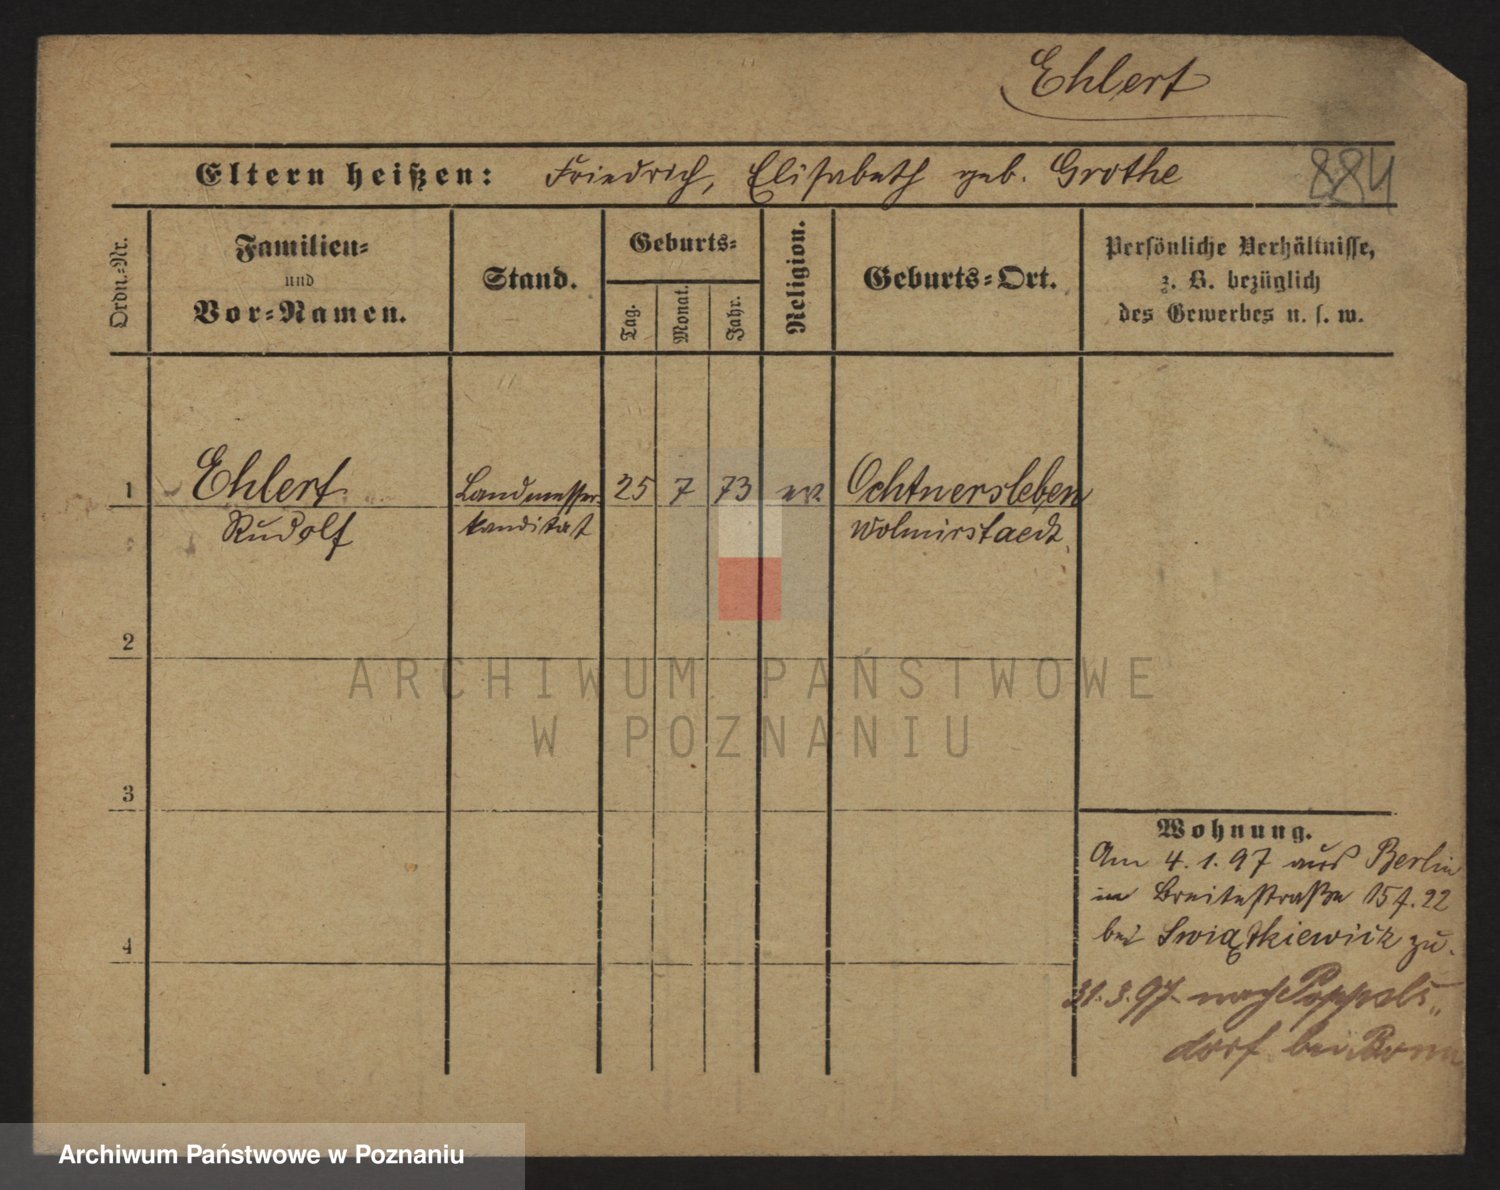 Ehlert
Eltern heißen: Friedrich, Elisabeth geb. Grothe
884
Ordn.-Nr.
Familien-
und
Vor-Namen.
Stand.
Geburts-
Tag.
Monat.
Jahr.
Religion.
Geburts-Ort.
Persönliche Verhältnisse,
z. B. bezüglich
des Gewerbes u. s. w.
1 Ehlert Landmesser- 25 7 73 ev. Ochtmersleben
Rudolf kanditat Wolmirstaedt
2
3
4
Wohnung.
Am 4.1.97 aus Berlin
in Breitestraße 15
bei Swiątkiewicz zu.
31.3.97 nach Poppels-
dorf bei Bonn
ARCHIWUM PAŃSTWOWE
W POZNANIU
Archiwum Państwowe w Poznaniu